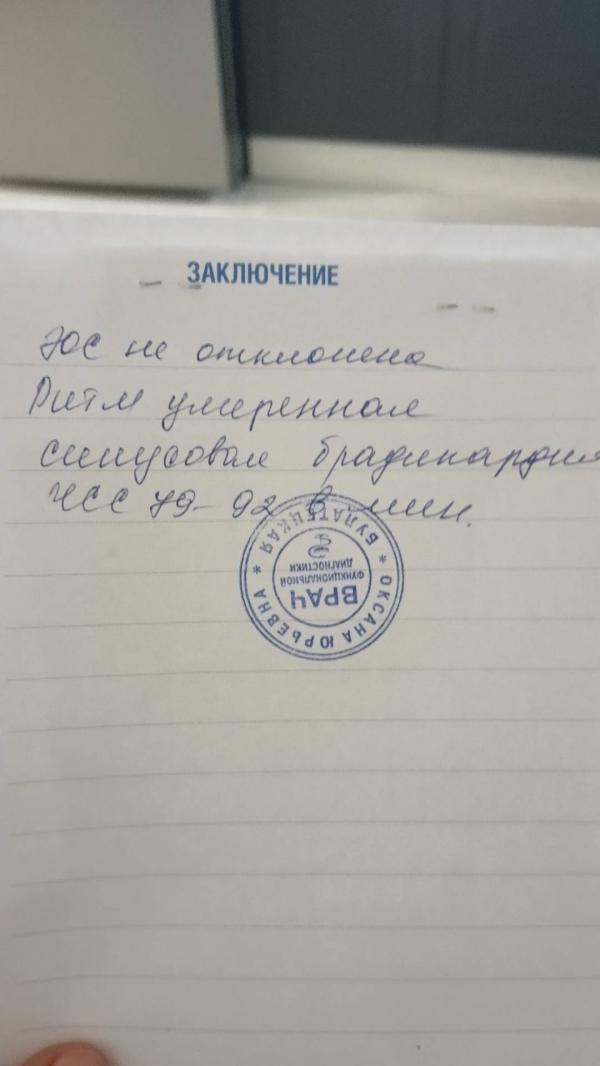 ЗАКЛЮЧЕНИЕ
ЭОС не отклонена
Ритм умеренная
синусовая брадикардия
ЧСС 79-92 в мин.
* ОКСАНА ЮРЬЕВНА * БУЛАТЕЦКАЯ
ВРАЧ
ФУНКЦИОНАЛЬНОЙ
ДИАГНОСТИКИ